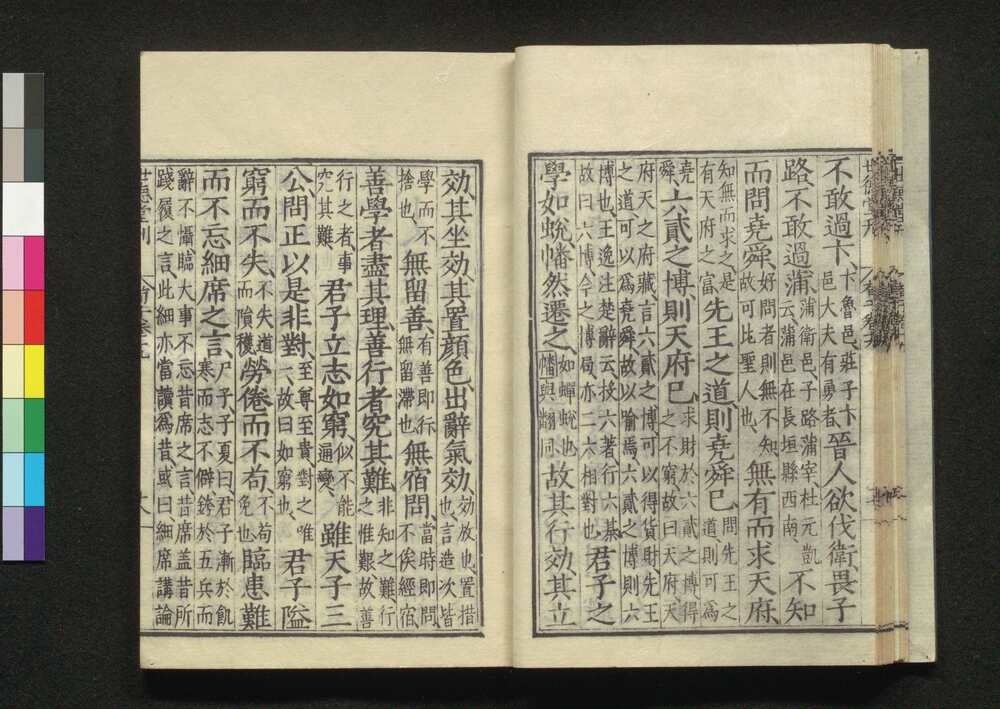 不敢過卞卞魯邑莊子卞邑大夫有勇者晉人欲伐衛畏子
路不敢過蒲蒲衛邑子路蒲宰杜元凱云蒲邑在長垣縣西南不知
而問堯舜好問者則無不知故可比聖人也無有而求天府
知無而求之是有天府之富先王之道則堯舜已問先王之道則可爲
堯舜六貳之博則天府已求財於六貳之博得之不窮故曰天府天
府天之府藏言六貳之博可以得貨財先王之道可以爲堯舜故以喻焉六貳之博則六
博也王逸注楚辭云投六著行六棊故曰六博今之博局亦二六相對也君子之
學如蛻幡然遷之如蟬蛻也幡與翻同故其行効其立
効其坐効其置顏色出辭氣効効放也置措也言造次皆
學而不捨也無留善有善即行無留滯也無宿問當時即問不俟經宿
善學者盡其理善行者究其難非知之難行之惟艱故善
行之者事究其難君子立志如窮似不能遍變雖天子三
公問正以是非對至尊至貴對之唯一故曰如窮也君子隘
窮而不失不失道而隕穫勞倦而不苟不苟免也臨患難
而不忘細席之言尸子子夏曰君子漸於飢寒而志不僻銙於五兵而
辭不懾臨大事不忘昔席之言昔席蓋昔所踐履之言此細亦當讀爲昔或曰細席講論
世德堂刊